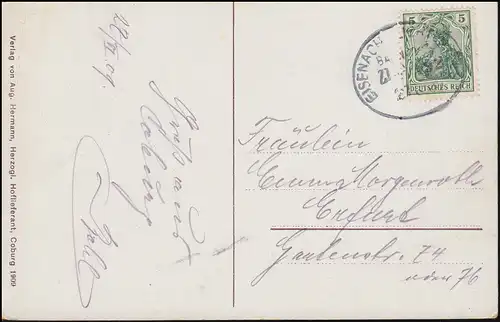 Verlag von Aug. Hermann, Herzogl. Hoflieferant, Coburg 1909
Gruß aus
Coburg
EISENACH
BA
5 5
DEUTSCHES REICH
Fräulein
Emma Morgenroth
Erfurt
Gartenstr. 74
oder 76